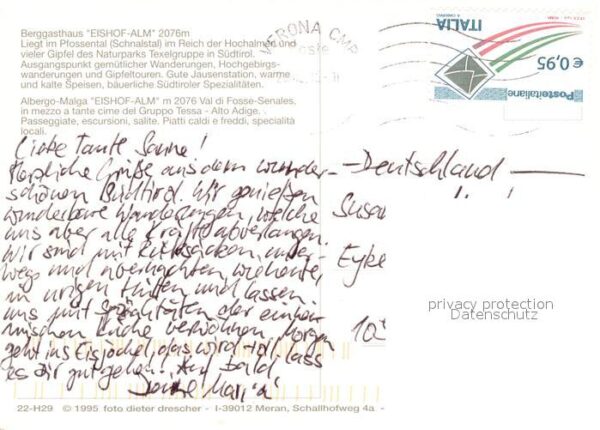 Berggasthaus "EISHOF-ALM" 2076m
Liegt im Pfossental (Schnalstal) im Reich der Hochalmen und
vieler Gipfel des Naturparks Texelgruppe in Südtirol.
Ausgangspunkt gemütlicher Wanderungen, Hochgebirgs-
wanderungen und Gipfeltouren. Gute Jausenstation, warme
und kalte Speisen, bäuerliche Südtiroler Spezialitäten.
Albergo-Malga "EISHOF-ALM" m 2076 Val di Fosse-Senales,
in mezzo a tante cime del Gruppo Tessa - Alto Adige.
Passeggiate, escursioni, salite. Piatti caldi e freddi, specialità
locali.
VERONA CMP
ITALIA
€ 0,95
Posteitaliane
Liebe Tante Sanne!
Herzliche Grüße aus dem wunder-
schönen Südtirol. Wir genießen
wunderbare Wanderungen, welche
uns aber alle Kräfte abverlangen.
Wir sind mit Rucksäcken unter-
wegs und übernachten
in urigen Hütten und lassen
uns mit Spezialitäten der einhei-
mischen Küche verwöhnen. Morgen
geht ins Eisjöchel, das wird toll! Lass
es dir gut gehen! Auf bald
Deine Maria
Deutschland
Susan
Eyke
10
privacy protection
Datenschutz
22-H29 © 1995 foto dieter drescher - I-39012 Meran, Schallhofweg 4a -